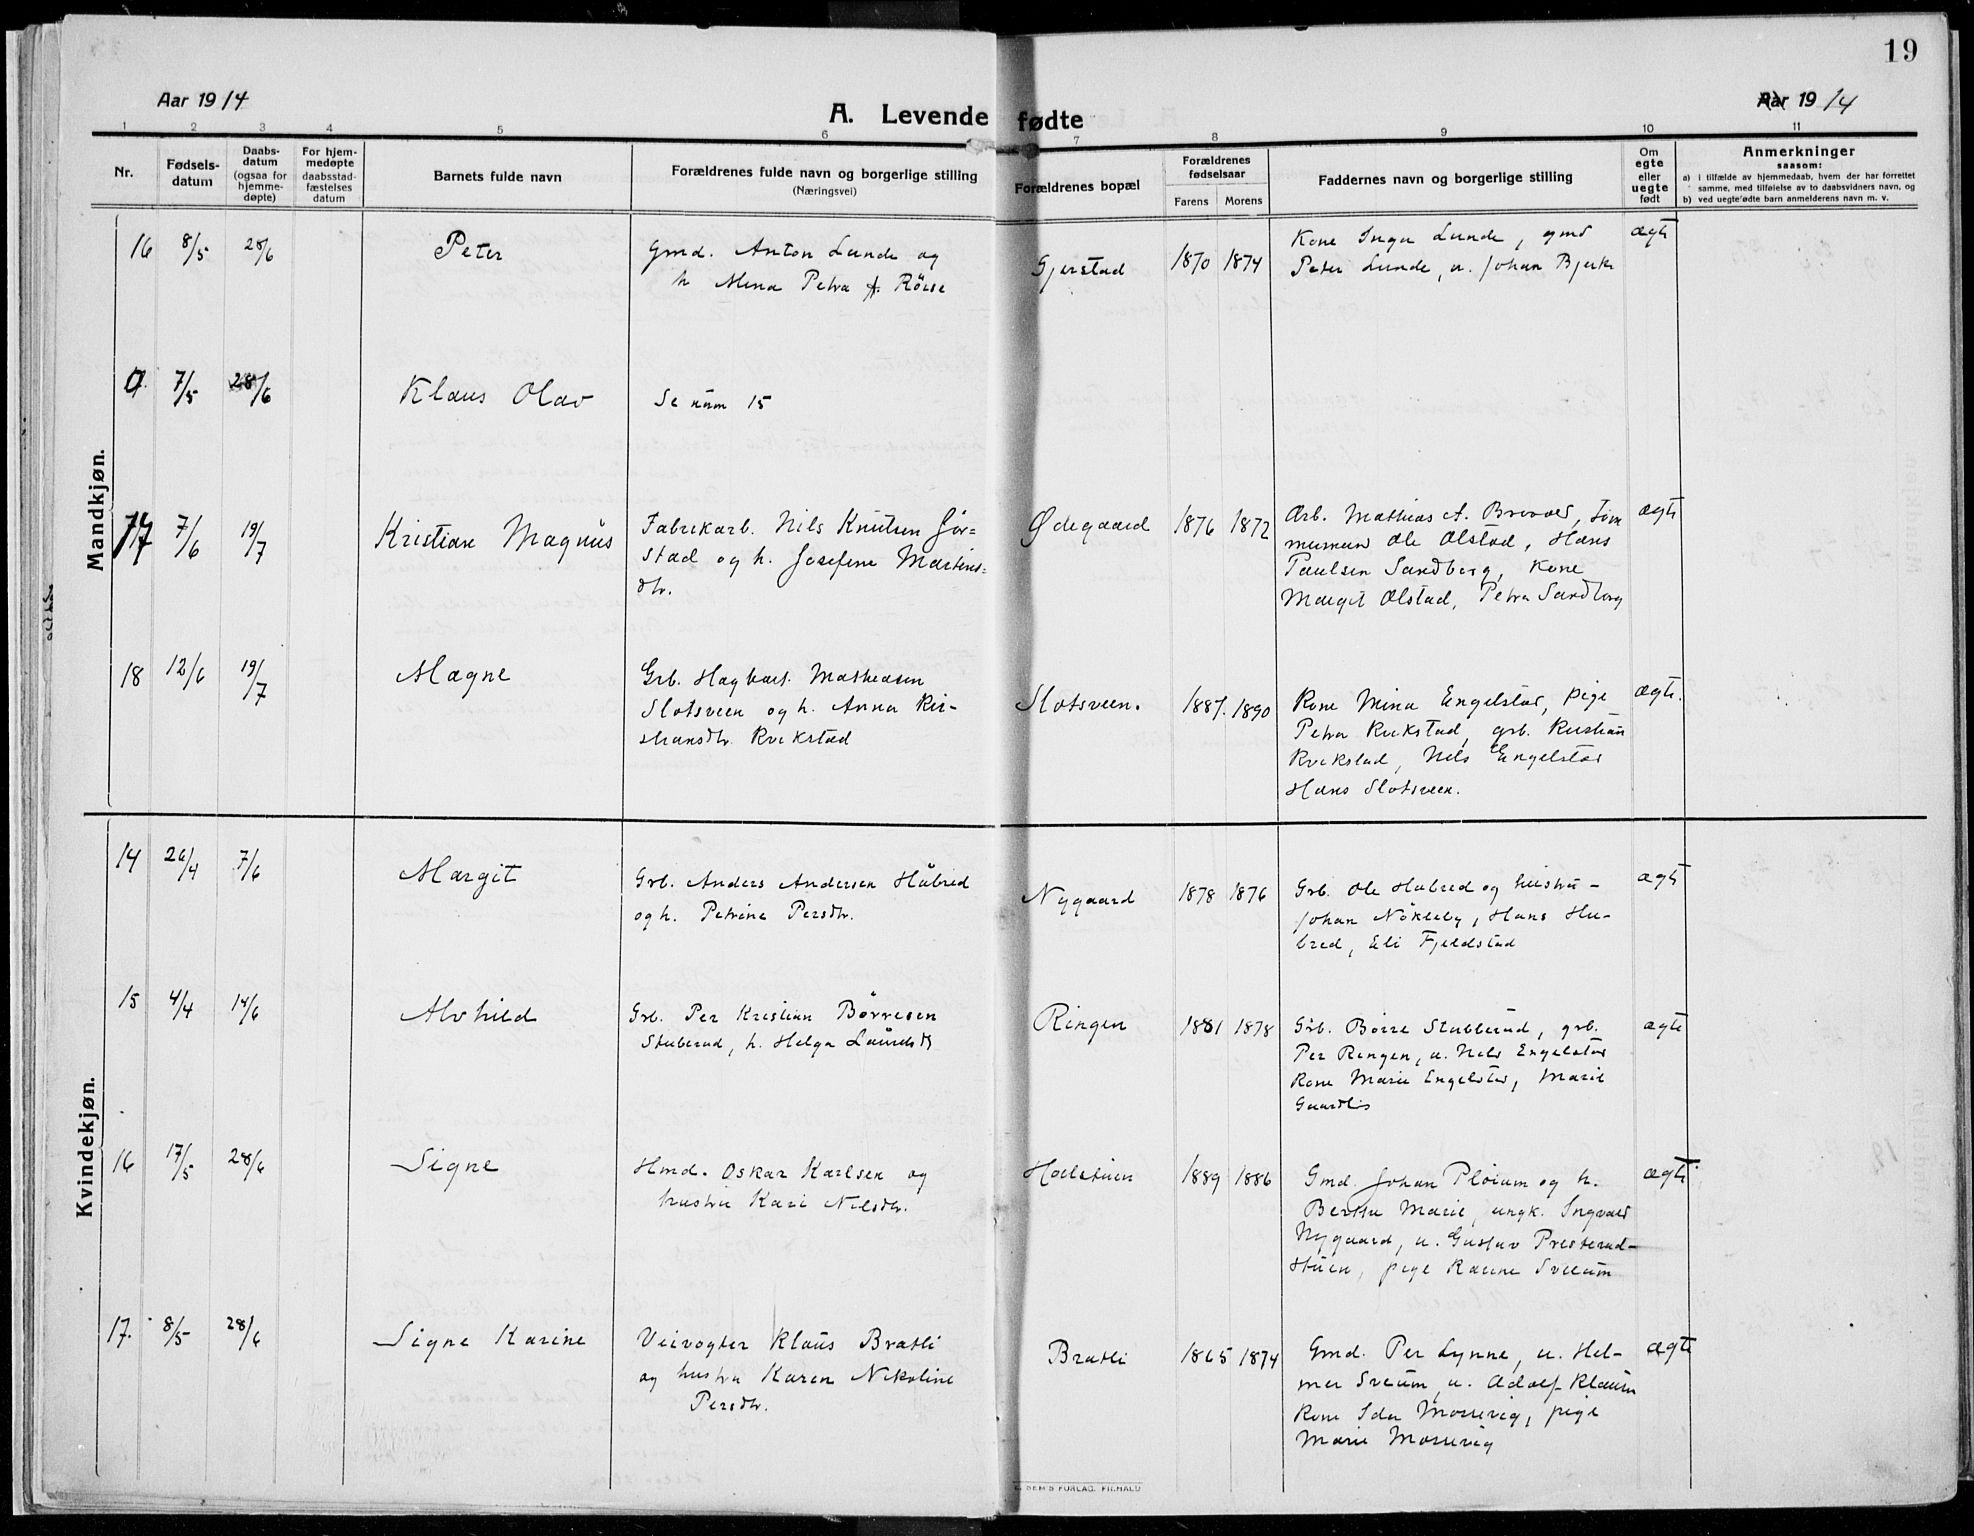 19
Aar 1914
A. Levende fødte
Aar 1914
1 2 3 4 5 6 7 8 9 10 11
Nr.
Fødsels-
datum
Daabs-
datum
(ogsaa for
hjemme-
døpte)
For hjem-
medøpte
daabsstad-
fæstelses
datum
Barnets fulde navn
Forældrenes fulde navn og borgerlige stilling
(Næringsvei)
Forældrenes bopæl
Forældrenes
fødselsaar
Farens Morens
Faddernes navn og borgerlige stilling
Om
egte
eller
uegte
født
Anmerkninger
saasom:
a) i tilfælde av hjemmedaab, hvem der har forrettet
samme, med tilføielse av to daabsvidners navn, og
b) ved uegte fødte barn anmelderens navn m. v.
Mandkjøn.
16 8/5 28/6 Peter
Gmd. Anton Lunde og
h. Mina Petra A. Röise
Gjerstad 1870 1874
Kone Inga Lunde, gmd
Peter Lunde, u. Johan Bjerke
ægte
0. 7/5 28/6 Klaus Olav
Se num 15
17 7/6 19/7 Kristian Magnus
Fabrikarb. Nils Knutsen Jör=
stad og h. Josefine Martins=
dtr.
Ødegaard 1876 1872
Arb. Mathias A.
Ole Olstad, Hans
Paulsen Sandberg, Kone
Margit Olstad, Petra Sandberg
ægte
18 12/6 19/7 Magne
Grb. Hagbart Matheasen
Slotsveen og h. Anna Kri-
stiansdtr. Rvekstad
Slotsveen. 1887. 1890
Kone Mina Engelstad, pige
Petra Rvekstad, grb. Kristian
Rvekstad, Nils Engelstad
Hans Slotsveen.
ægte.
Kvindekjøn.
14 26/4 7/6 Margit
Grb. Anders Andersen Hubred
og h. Petrine Persdtr.
Nygaard 1878 1876
Grb. Ole Hubred og hustru -
Johan Nökleby, Hans Hu-
bred, Eli Fjeldstad
ægte
15 4/4 14/6 Alvhild
Grb. Per Kristian Børresen
Stuberud, h. Helga Laursdtr
Ringen 1881 1878
Grb. Börre Stubberud, grb.
Per Ringen, u. Nils Engelstad
Kone Marie Engelstad, Marie
Gaardlös
ægte
16 17/5 28/6 Signe
Hmd. Oskar Karlsen og
hustru Kari Nilsdtr.
Holstuen 1889 1886
Gmd. Johan Ploium og h.
Berthe Marie, ungk. Ingvald
Nygaard, u. Gustav Presterud-
stuen, pige Karine Sveum
ægte
17. 8/5 28/6 Signe Karine
Veivogter Klaus Bratli
og hustru Karen Nikoline
Persdtr.
Bratli 1865 1874
Gmd. Per Lynne, u. Hel-
mer Sveum, u. Adolf Klaum
Kone Ida Mossevig, pige
Marie Mossevig
ægte